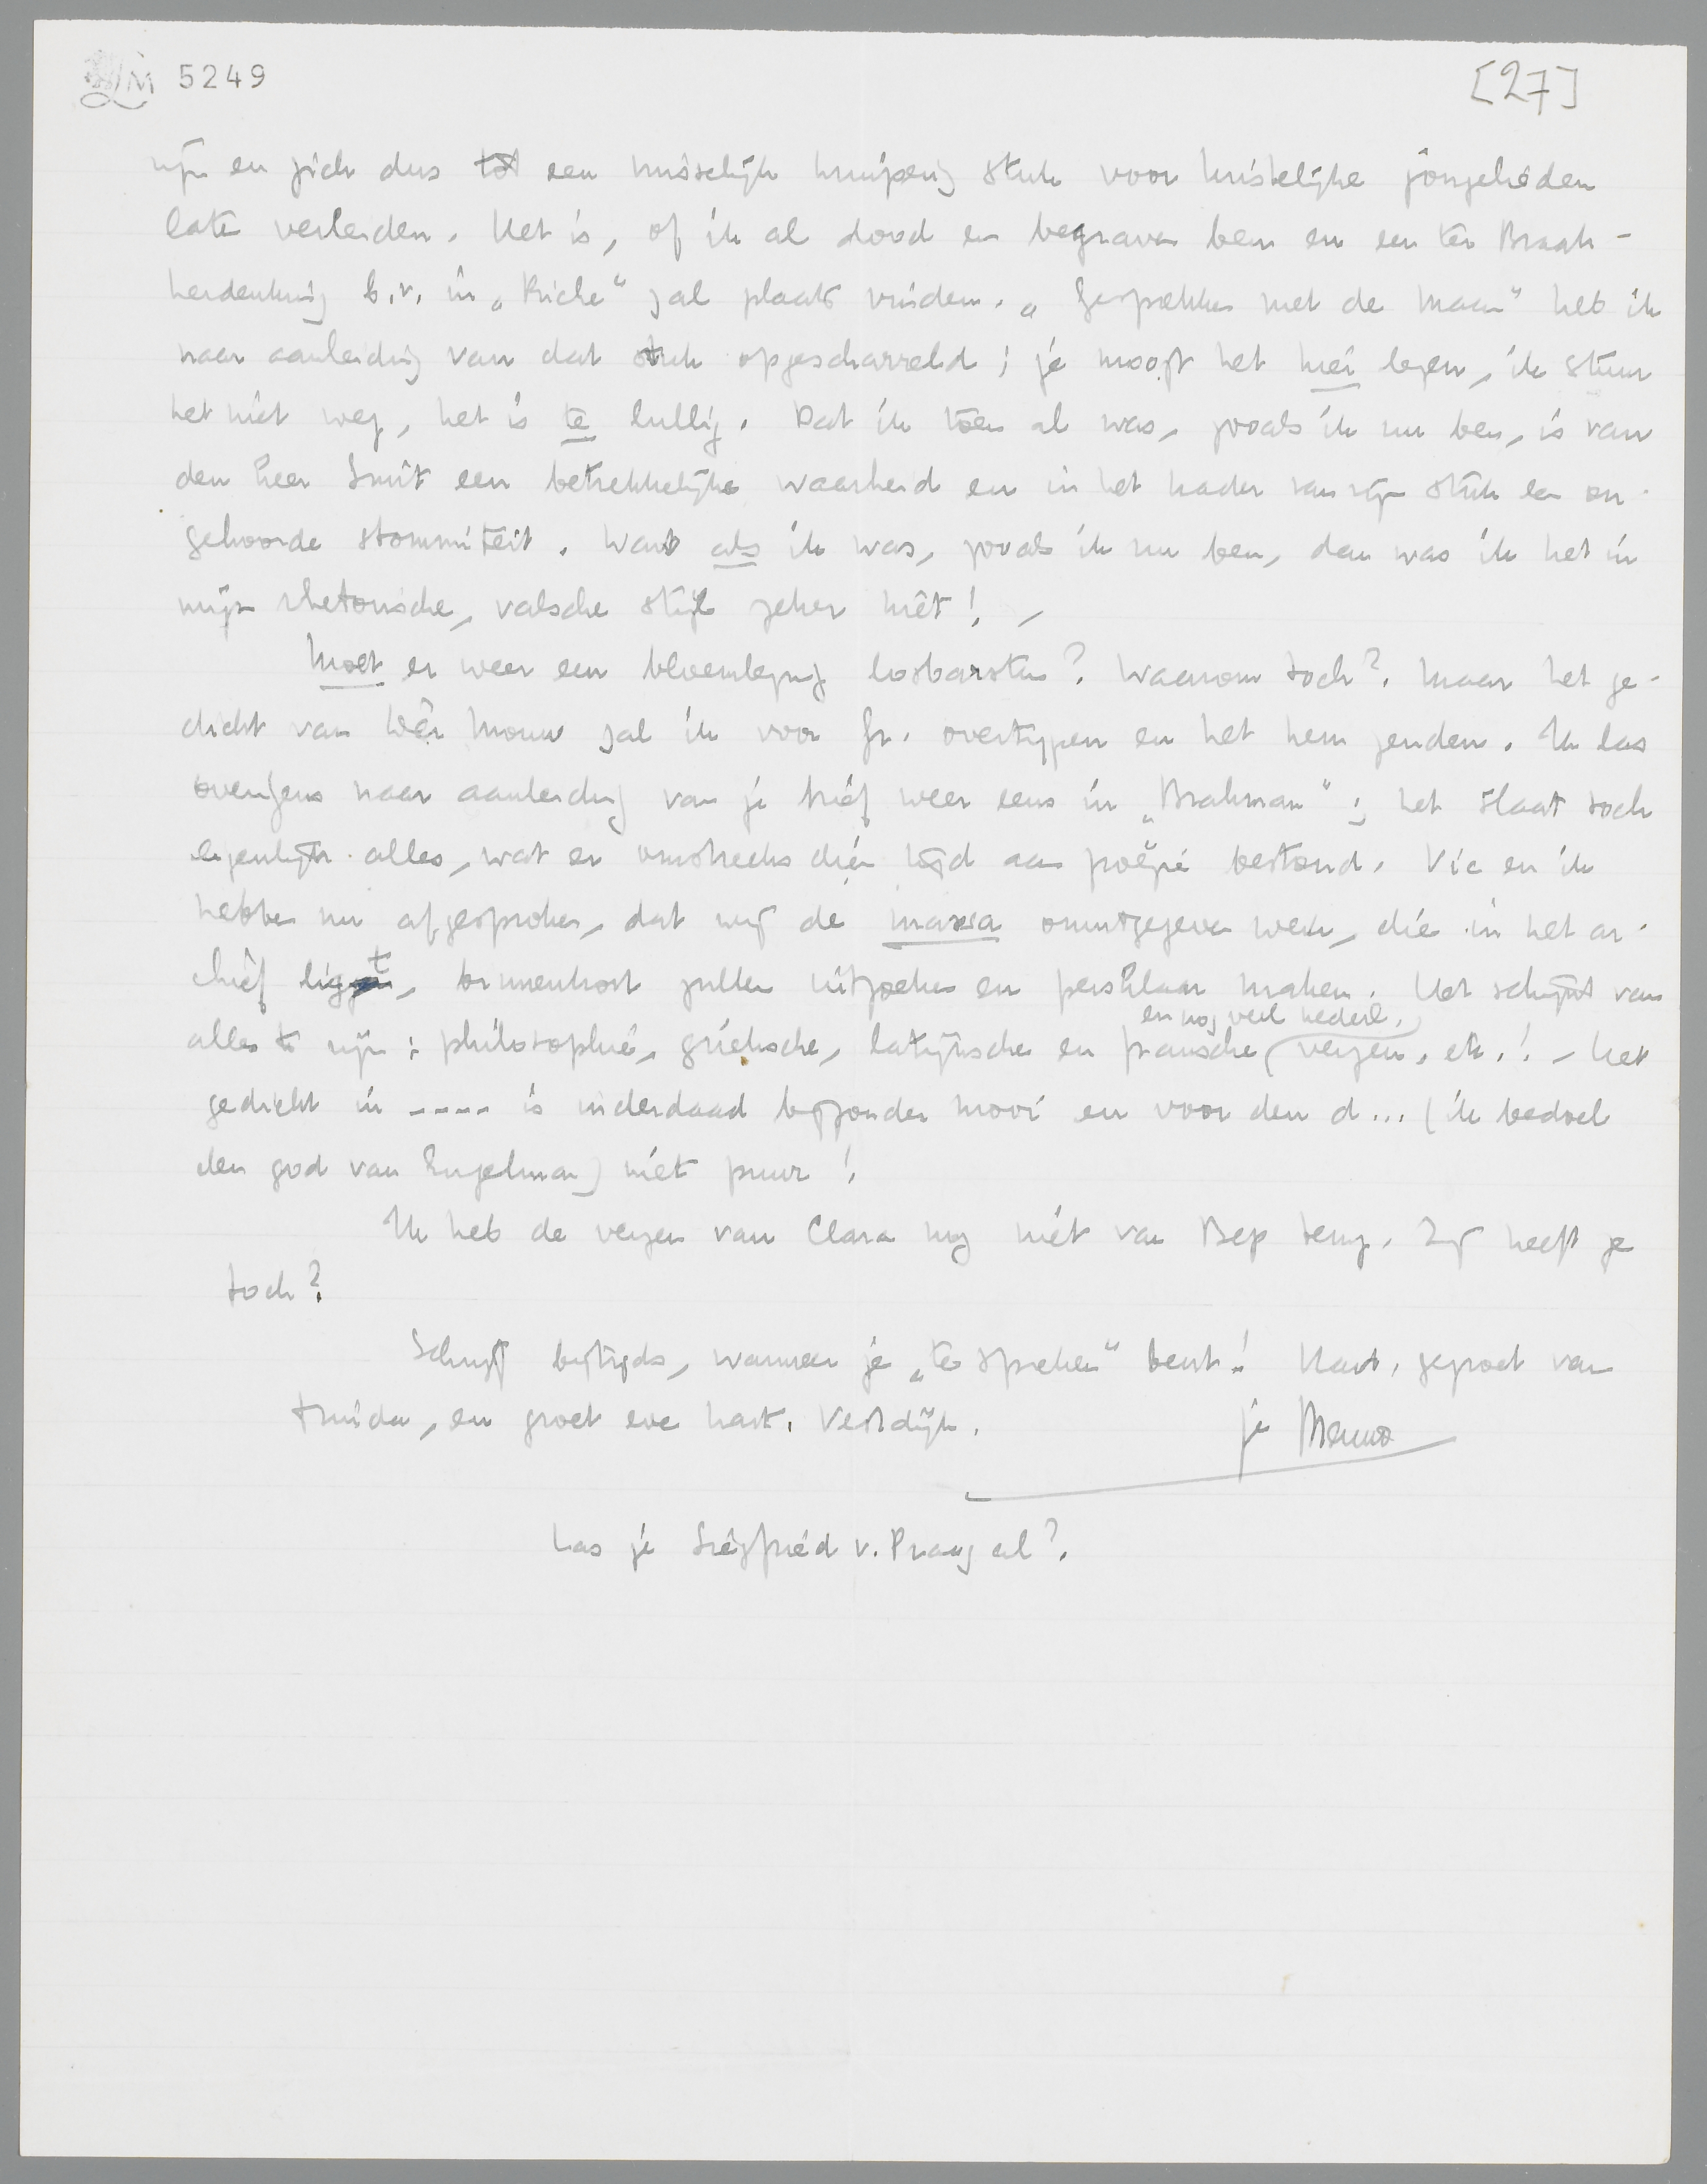 LM 5249
[27]
zijn en zich dus tot een misselijk kruiperig stuk voor kristelijke jongelieden
laten verleiden. Het is, of ik al dood en begraven ben en een ter Braak-
herdenking b.v. in „Riche" zal plaats vinden. „Gesprekken met de Maan" heb ik
naar aanleiding van dat stuk opgescharreld; je moogt het hier lezen, ik stuur
het niet weg, het is te lullig. Dat ik toen al was, zooals ik nu ben, is van
den heer Smit een betrekkelijke waarheid en in het kader van zijn stuk een on-
gehoorde stommiteit. Want als ik was, zooals ik nu ben, dan was ik het in
mijn rhetorische, valsche stijl zeker niet! -
Moet er weer een bloemlezing losbarsten? Waarom toch? Maar het ge-
dicht van Dèr Mouw zal ik voor Gr. overtypen en het hem zenden. Ik las
overigens naar aanleiding van je brief weer eens in „Brahman"; het slaat toch
eigenlijk alles, wat er omstreeks dien tijd aan poëzie bestond. Vic en ik
hebben nu afgesproken, dat wij de massa onuitgegeven werk, die in het ar-
chief ligt, binnenkort zullen uitzoeken en persklaar maken. Het schijnt van
en nog veel nederl.
alles te zijn: philosophie, grieksche, latijnsche en fransche verzen, etc.! - Het
gedicht in ---- is inderdaad bijzonder mooi en voor den d... (ik bedoel
den god van Engelman) niet puur!
Ik heb de verzen van Clara nog niet van Bep terug. Zij heeft ze
toch?
Schrijf bijtijds, wanneer je „te spreken" bent! Hart. gegroet van
Truida, en groet eve hart. Vestdijk.
je Menno
Las je Siegfried v. Praag al?